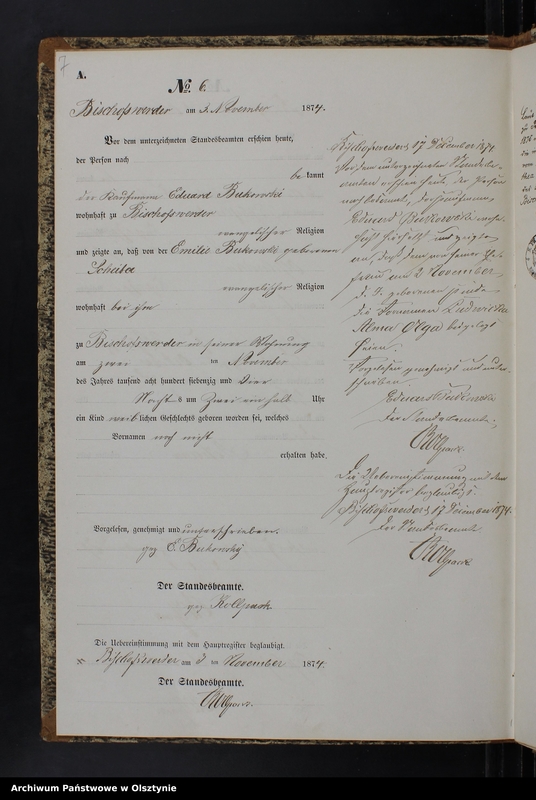 7
A.
No. 6.
Bischofswerder am 3. November 1874.
Vor dem unterzeichneten Standesbeamten erschien heute,
der Person nach
bekannt
der Kaufmann Eduard Bukowski
wohnhaft zu Bischofswerder
evangelischer Religion
und zeigte an, daß von der Emilie Bukowski geborenen
evangelischer Religion
wohnhaft bei ihm
zu Bischofswerder in seiner Wohnung
am zwei ten November
des Jahres tausend acht hundert siebenzig und vier
Nachts um zwei ein halb Uhr
ein Kind weiblichen Geschlechts geboren worden sei, welches
Vornamen noch nicht
erhalten habe.
Vorgelesen, genehmigt und unterschrieben.
gez E. Bukowski
Der Standesbeamte.
gez
Die Uebereinstimmung mit dem Hauptregister beglaubigt.
Bischofswerder am 3 ten November 1874.
Der Standesbeamte.
Bischofswerder, 17 Dezember 1874
Vor dem unterzeichneten Standesbe-
amten erschien heute, der Person
nach bekannt, der Kaufmann
Eduard Bukowski wohn-
haft hierselbst und zeigte
an, daß dem von seiner Ehe-
frau am 2 November
d. J. geborenen Kinde
die Vornamen
Alma Olga beigelegt
seien.
Vorgelesen genehmigt und unter-
schrieben.
Eduard Bukowski
Der Standesbeamte.
Die Uebereinstimmung mit dem
Hauptregister beglaubigt.
Bischofswerder, 17 Dezember 1874.
Der Standesbeamte.
Archiwum Państwowe w Olsztynie